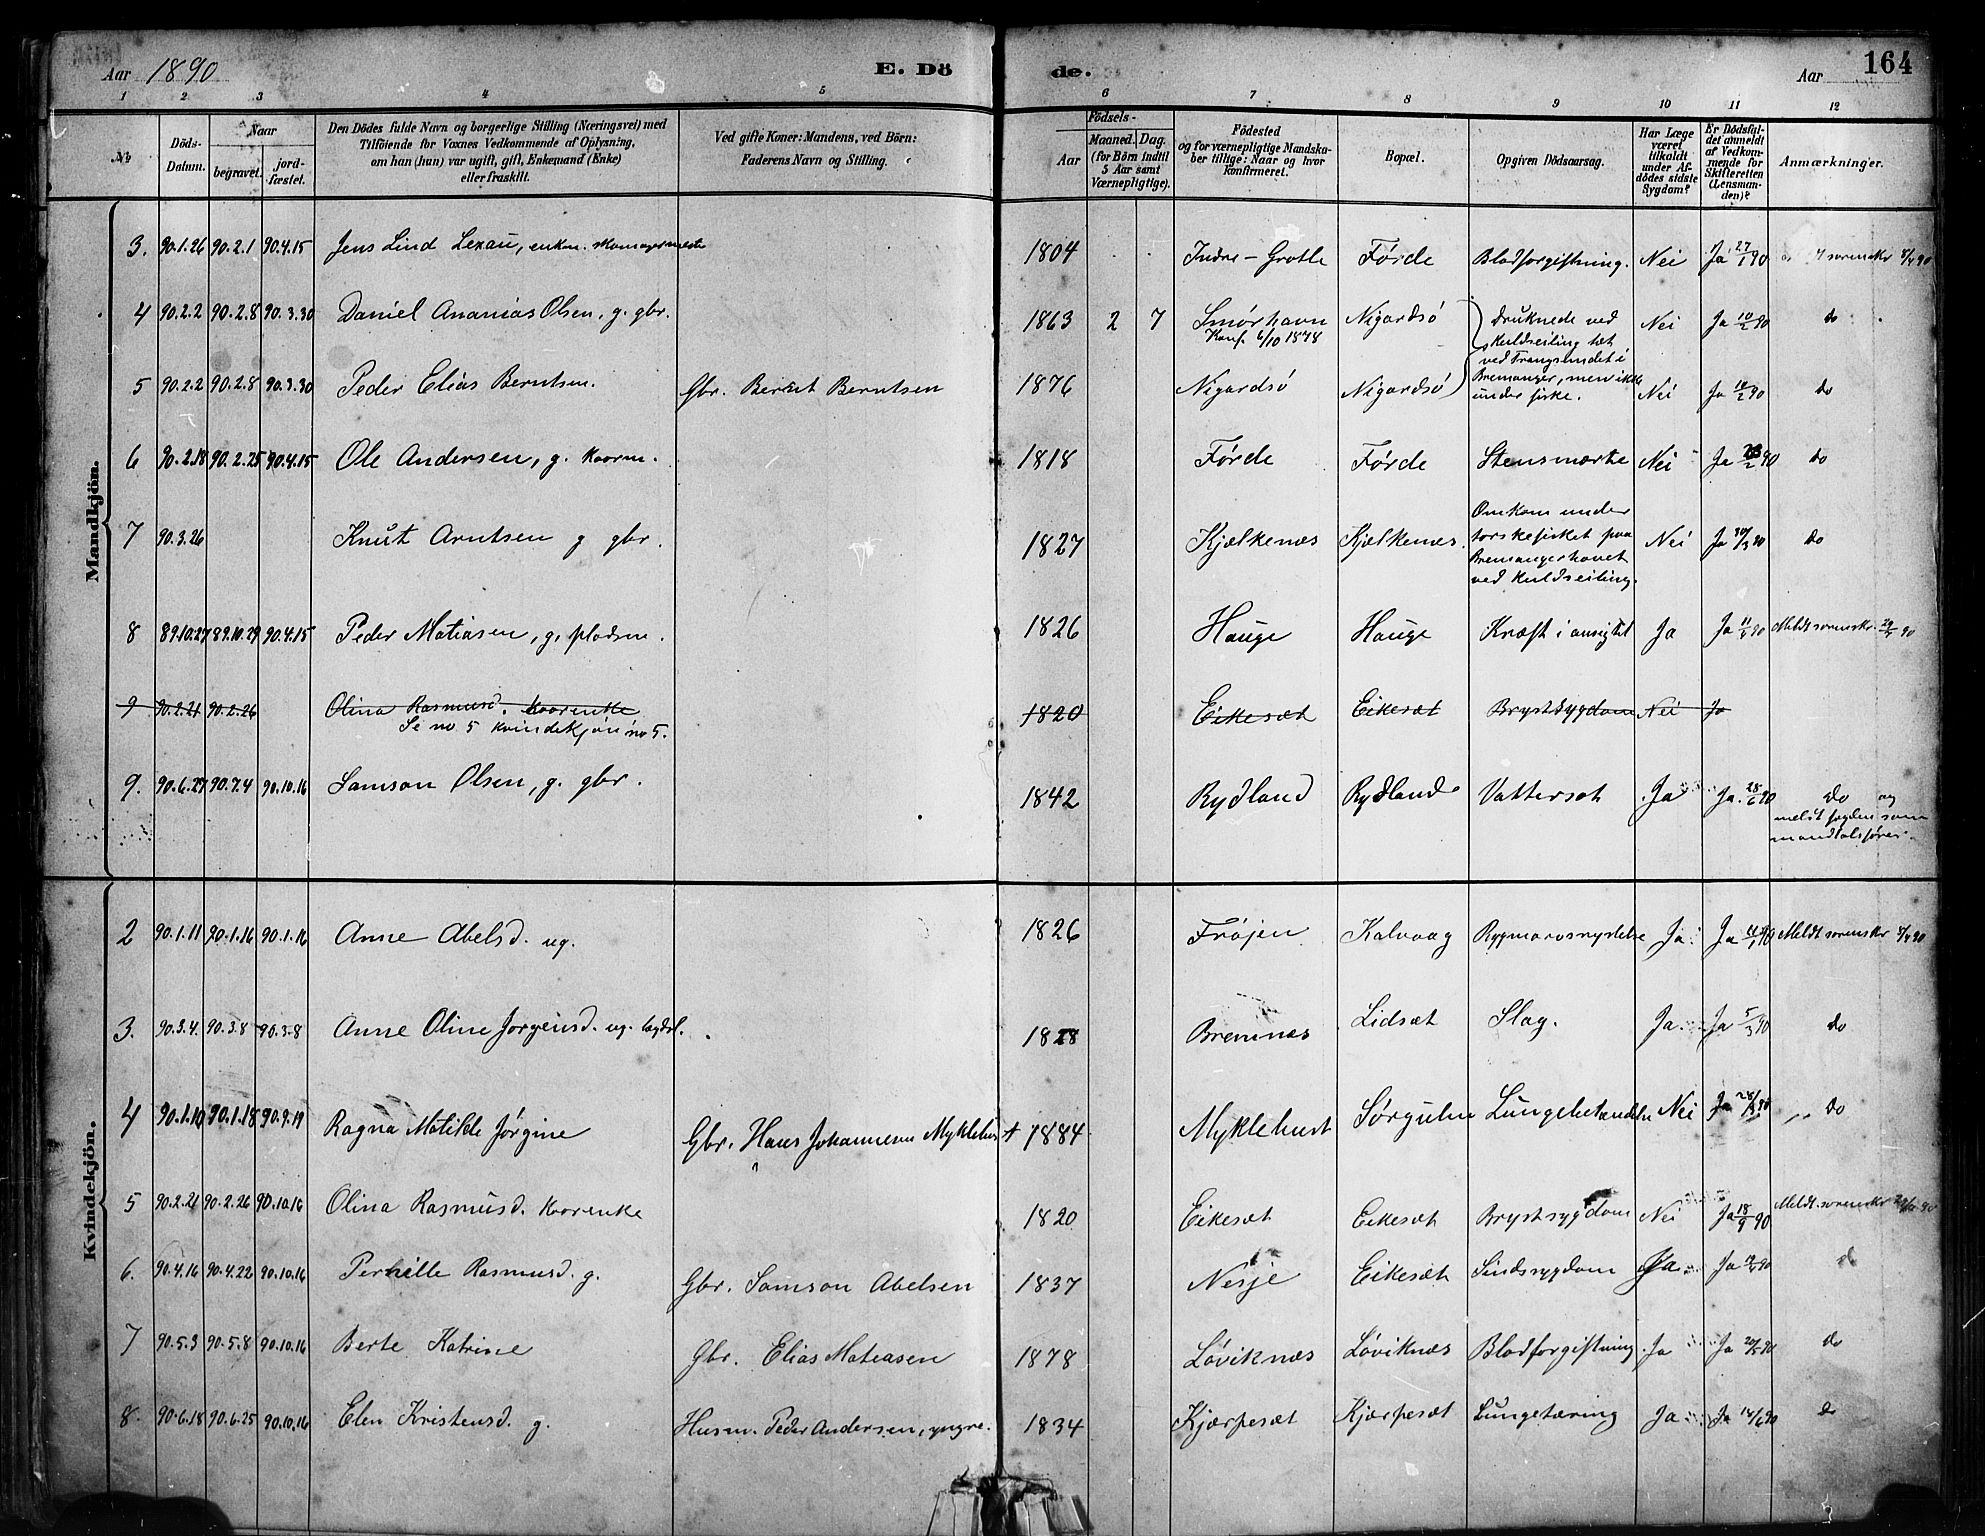 Aar 1890 E. Dö de. Aar 164
1 2 3 4 5 6 7 8 9 10 11 12
No
Döds-Datum.
Naar
begravet.
jord-fæstet.
Den Dödes fulde Navn og borgerlige Stilling (Næringsvei) med
Tilföiende for Voxnes Vedkommende af Oplysning,
om han (hun) var ugift, gift, Enkemand (Enke)
eller fraskilt.
Ved gifte Koner: Mandens, ved Börn:
Faderens Navn og Stilling.
Födsels-
Aar
Maaned. Dag.
(for Börn indtil
5 Aar samt
Værnepligtige).
Födested
og for værnepligtige Mandska-
ber tillige: Naar og hvor
konfirmeret.
Bopæl.
Opgiven Dödsaarsag.
Har Læge
været
tilkaldt
under Af-
dödes sidste
Sygdom?
Er Dödsfal-
det anmeldt
af Vedkom-
mende for
Skifteretten
(Lensman-
den)?
Anmærkninger.
Mandkjön.
3. 90.1.26 90.2.1 90.4.15 Jens Lind Lexau, enkem. skomagermester 1804 Indre-Grotle Førde Blodforgiftning. Nei Ja 27/1 90 sorenskr 8/4 90
4 90.2.2 90.2.8 90.3.30 Daniel Ananias Olsen, g. gbr. 1863 2 7 Smørhavn Nigardsö Nei Ja 10/2 90 do
Konf. 6/10 1878
druknede ved
kuldseiling tæt
ved Frangsundet i
Bremanger, men ikke
under fiske.
5 90.2.2 90.2.8 90.3.30 Peder Elias Berntsen. Gbr. Berent Berntsen 1876 Nigardsö Nigardsö Nei Ja 10/2 90 do
6 90.2.18 90.2.25 90.4.15 Ole Andersen, g. kaarm. 1818 Førde Førde Stensmerte Nei Ja 23/2 90 do
7 90.3.26 Knut Arntsen g gbr. 1827 Kjælkenæs Kjælkenæs. Nei Ja 30/3 90 do
Omkom under
torskefisket paa
Bremangerhavet
ved kuldseiling.
8 89.10.27 89.10.29 90.4.15 Peder Matiasen, g. pladsm. 1826 Hauge Hauge Kræft i ansigtet Ja Ja 90 Meldt sorenskr. 90
9 90.2.21 90.2.26 Olina Rasmusd. kaarenke 1820 Eikesæt Eikesæt Brystsygdom Nei Ja
Se no 5 kvindekjön no 5.
9. 90.6.27 90.7.4 90.10.16 Samson Olsen, g. gbr. 1842 Rydland Rydland Vattersot Ja Ja 28/6 90 do og
meldt fogden som
mandtalsfører.
Kvindekjön.
2 90.1.11 90.1.16 90.1.16 Anne Abelsd. ug. 1826 Frøjen Kalvaag Rygmarvsrystelse Ja Ja 90 Meldt sorenskr 8/4 90
3. 90.3.4. 90.3.8 90.3.8 Anne Oline Jørgensd. ug. lægdsl. 1828 Bremnes Lidsæt Slag. Ja. Ja 5/3 90 do
4 90.1.10 90.1.18 90.9.19 Ragna Matilde Jørgine Gbr. Hans Johannesen Myklebust 1884 Myklebust Sørgulen Lungebetændelse Nei Ja 90 do
5 90.2.21 90.2.26 90.10.16 Olina Rasmusd. kaarenke 1820 Eikesæt Eikesæt Brystsygdom Nei Ja 18/9 90 Meldt sorenskr 90
6. 90.4.16 90.4.22 90.10.16 Pernille Rasmusd. g. Gbr. Samson Abelsen 1837 Nesje Eikesæt Sindssygdom Ja Ja 90 d
7 90.5.3 90.5.8 90.10.16 Berte Katrine Gbr. Elias Mateasen 1878 Løviknæs Løviknæs Blodforgiftning Ja Ja 20/5 90 do
8. 90.6.18 90.6.25 90.10.16 Elen Kristensd. g. Husm. Peder Andersen, yngre. 1834 Kjærpesæt Kjærpesæt Lungetæring Ja Ja 18/6 90 do